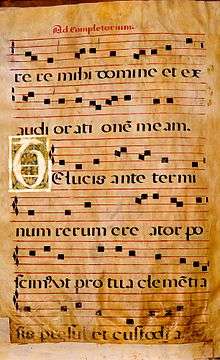 Ad completorium.
re re mihi domine et ex
audi orati onē meam.
Te lucis ante termi
num rerum cre ator po
scimus ut pro tua clemētia
sis presul et custodia